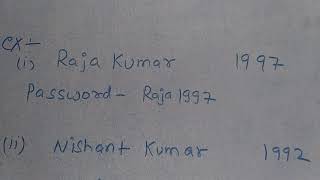 ex:-
(i) Raja Kumar 1997
Password- Raja1997
(ii) Nishant Kumar 1992